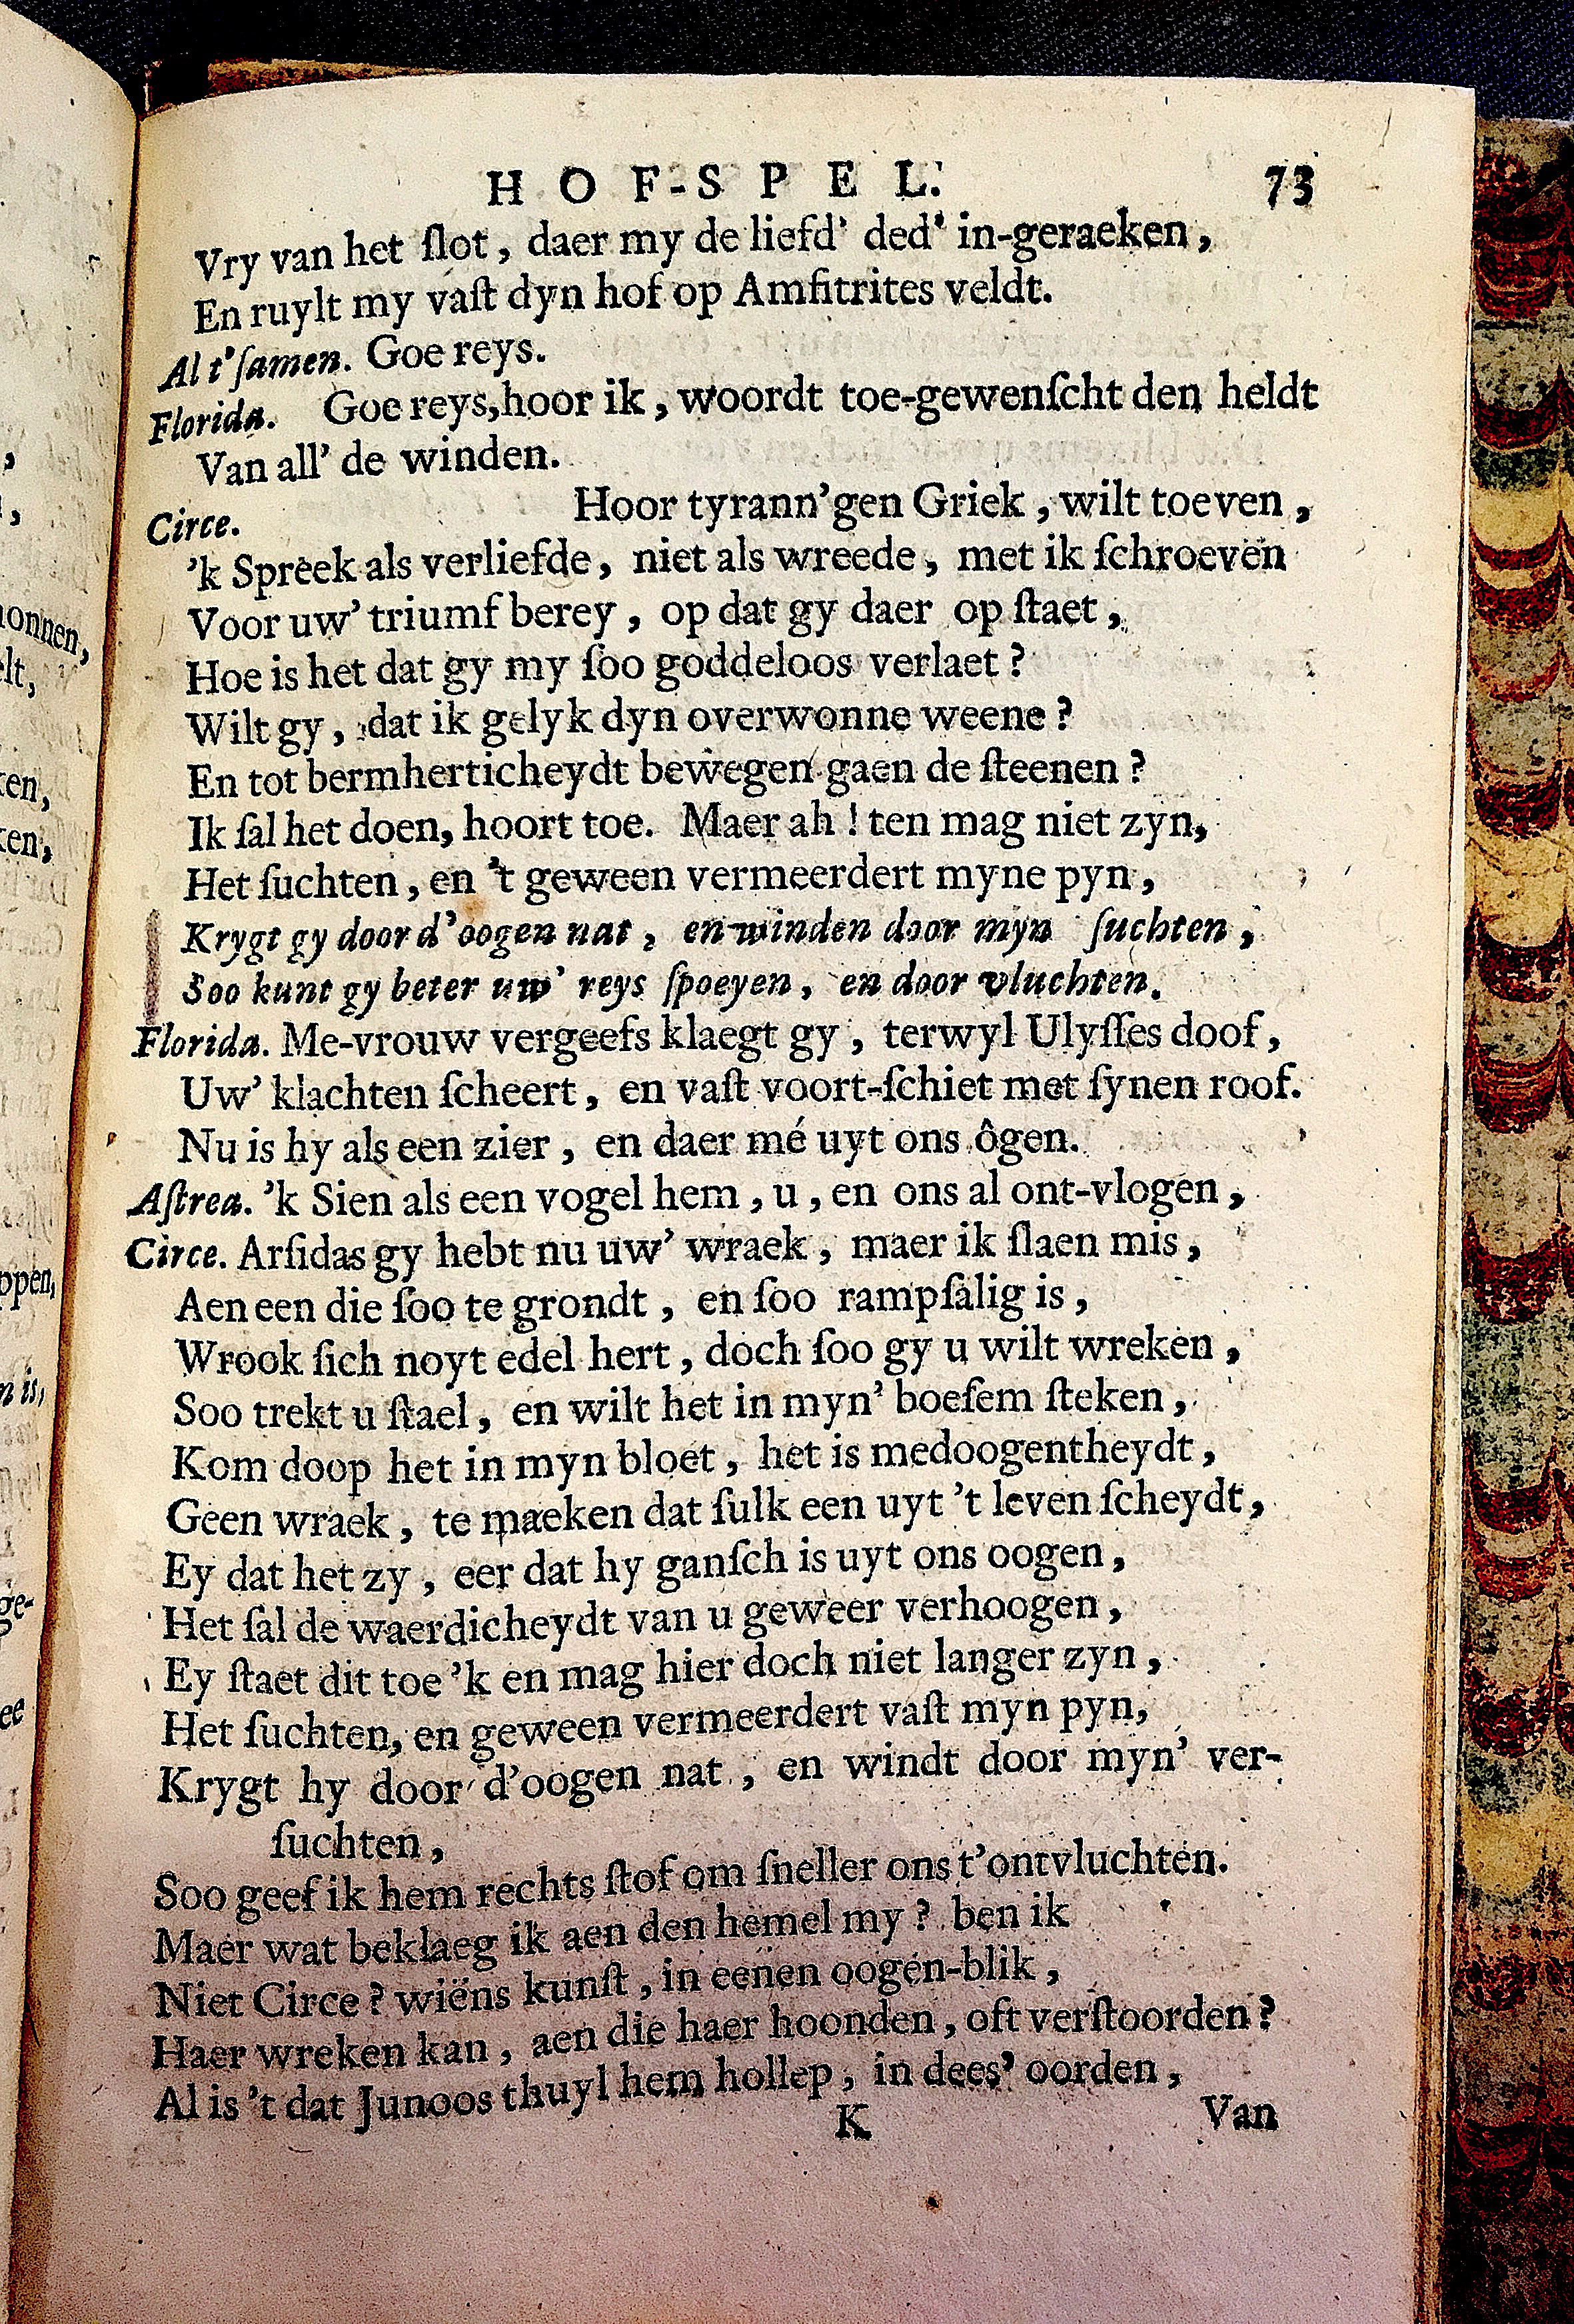 HOF-SPEL. 73
Vry van het ſlot, daer my de liefd' ded' in-geraeken,
En ruylt my vaſt dyn hof op Amfitrites veldt.
Al t'ſamen. Goe reys.
Florida. Goe reys, hoor ik, woordt toe-gewenſcht den heldt
Van all' de winden.
Circe. Hoor tyrann'gen Griek, wilt toeven,
'k Spreek als verliefde, niet als wreede, met ik ſchroeven
Voor uw' triumf berey, op dat gy daer op ſtaet,
Hoe is het dat gy my ſoo goddeloos verlaet?
Wilt gy, dat ik gelyk dyn overwonne weene?
En tot bermherticheydt bewegen gaen de ſteenen?
Ik ſal het doen, hoort toe. Maer ah! ten mag niet zyn,
Het ſuchten, en 't geween vermeerdert myne pyn,
Krygt gy door d'oogen nat, en winden door myn ſuchten,
Soo kunt gy beter uw' reys ſpoeyen, en door vluchten.
Florida. Me-vrouw vergeefs klaegt gy, terwyl Ulyſſes doof,
Uw' klachten ſcheert, en vaſt voort-ſchiet met ſynen roof.
Nu is hy als een zier, en daer mé uyt ons ôgen.
Aſtrea. 'k Sien als een vogel hem, u, en ons al ont-vlogen,
Circe. Arſidas gy hebt nu uw' wraek, maer ik ſlaen mis,
Aen een die ſoo te grondt, en ſoo rampſalig is,
Wrook ſich noyt edel hert, doch ſoo gy u wilt wreken,
Soo trekt u ſtael, en wilt het in myn' boeſem ſteken,
Kom doop het in myn bloet, het is medoogentheydt,
Geen wraek, te maeken dat ſulk een uyt 't leven ſcheydt,
Ey dat het zy, eer dat hy ganſch is uyt ons oogen,
Het ſal de waerdicheydt van u geweer verhoogen,
Ey ſtaet dit toe 'k en mag hier doch niet langer zyn,
Het ſuchten, en geween vermeerdert vaſt myn pyn,
Krygt hy door d'oogen nat, en windt door myn' ver-
ſuchten,
Soo geef ik hem rechts ſtof om ſneller ons t'ontvluchten.
Maer wat beklaeg ik aen den hemel my? ben ik
Niet Circe? wiëns kunſt, in eenen oogen-blik,
Haer wreken kan, aen die haer hoonden, oft verſtoorden?
Al is 't dat Junoos thuyl hem hollep, in dees' oorden,
K Van